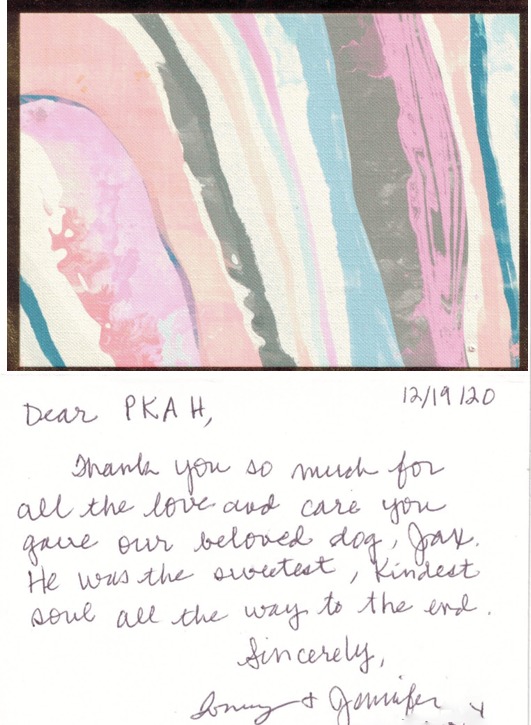 12/19/20
Dear PKAH,
Thank you so much for
all the love and care you
gave our beloved dog, Jax.
He was the sweetest, kindest
soul all the way to the end.
Sincerely,
& Jennifer